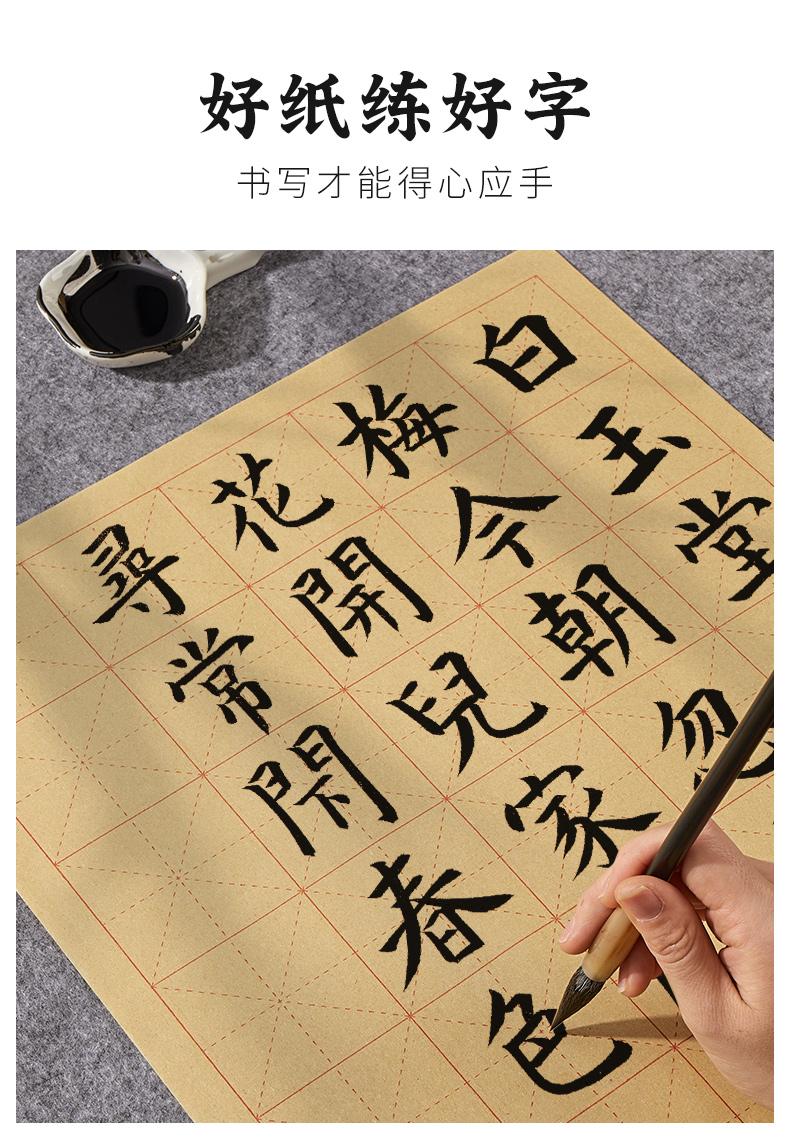 好纸练好字
书写才能得心应手
白玉堂
梅今朝忽
花開兒家
尋常閇春色